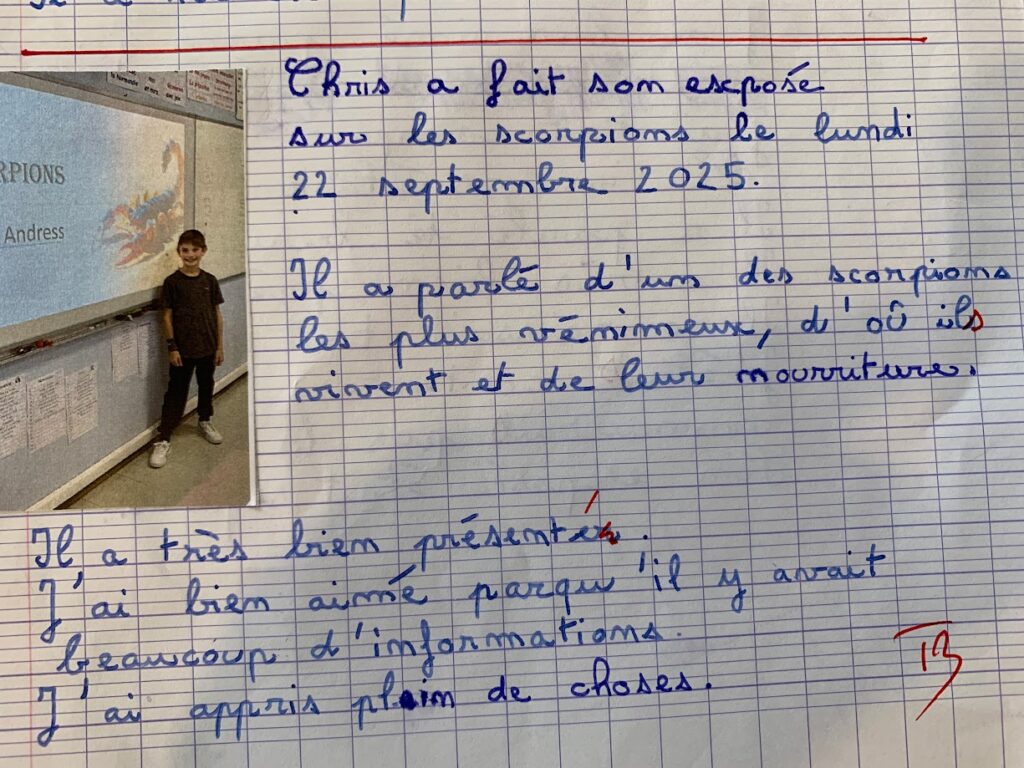 Chris a fait son exposé
sur les scorpions le lundi
22 septembre 2025.
RPIONS
Andress
Il a parlé d'un des scorpions
les plus vénimeux, d'où ils
vivent et de leur nourriture.
Il a très bien présenté.
J'ai bien aimé parqu'il y avait
beaucoup d'informations.
J'ai appris plein de choses.
TB